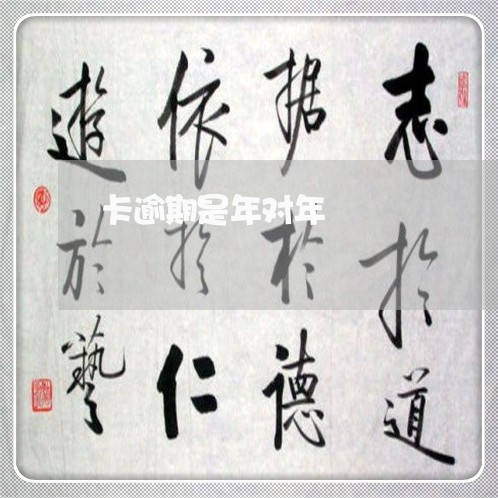 志於道
据於德
依於仁
遊於藝
卡逾期是年对年